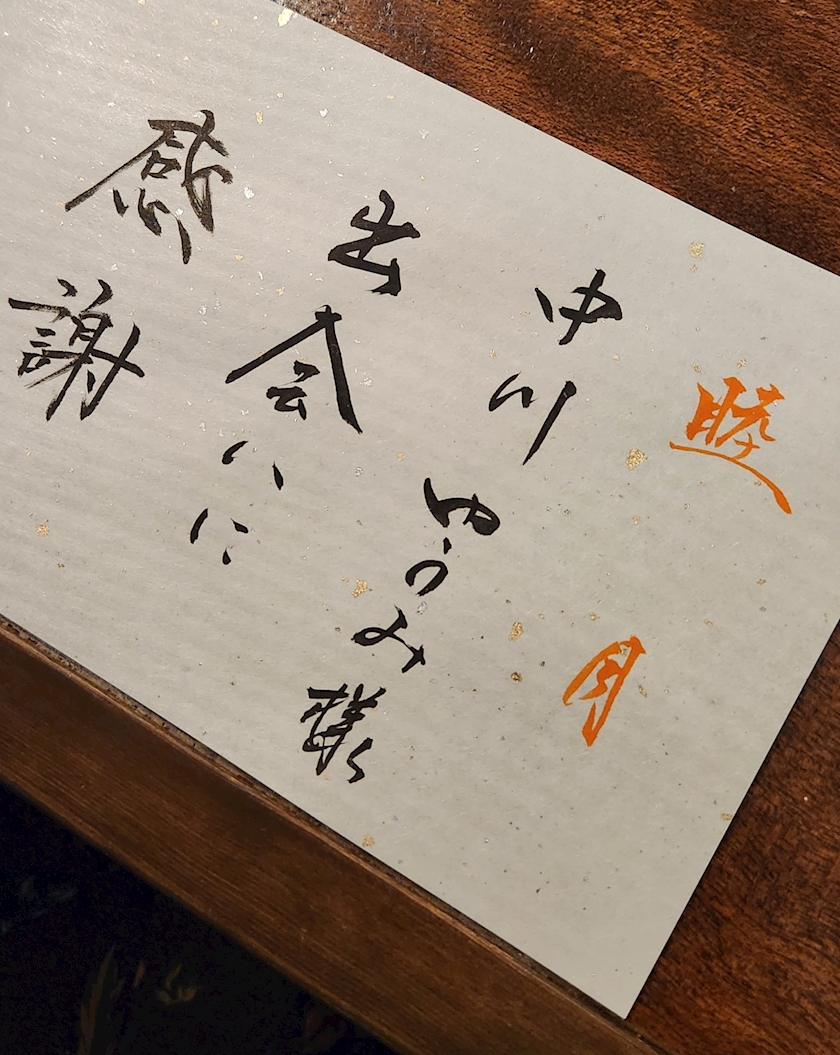 睦月
中川ゆうみ様
出会いに
感謝